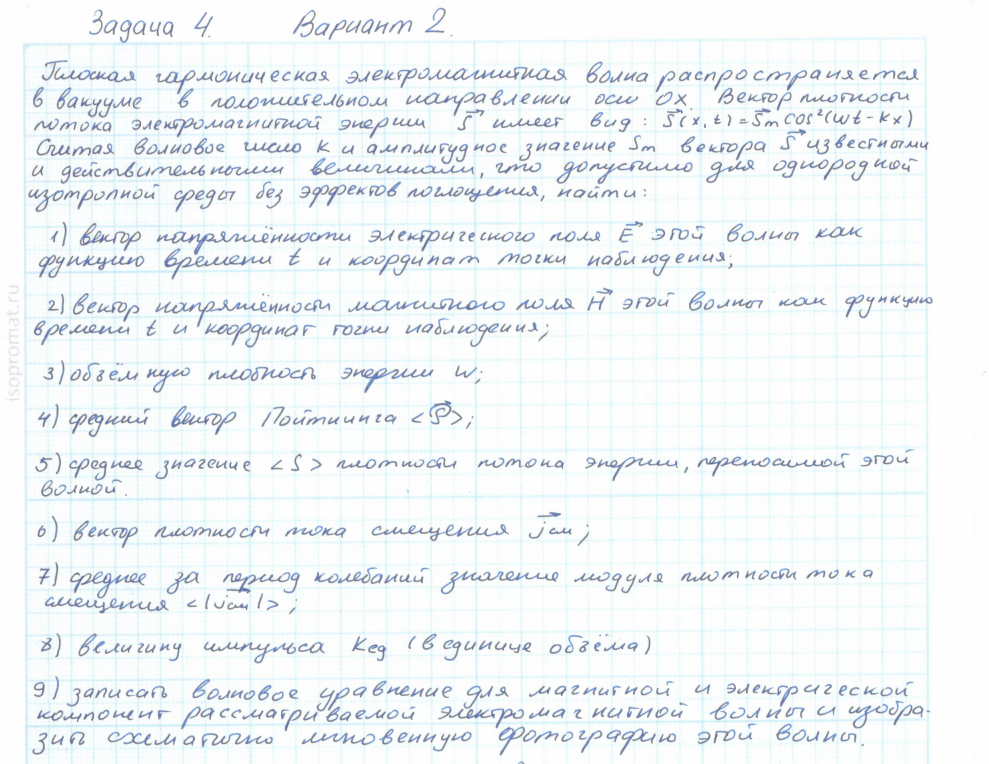 Задача 4. Вариант 2.
Плоская гармоническая электромагнитная волна распространяется
в вакууме в положительном направлении оси Ox. Вектор плотности
потока электромагнитной энергии S⃗ имеет вид: S⃗(x,t)=S⃗m cos²(ωt-kx)
Считая волновое число k и амплитудное значение Sm вектора S⃗ известными
и действительными величинами, что допустимо для однородной
изотропной среды без эффектов поглощения, найти:
1) вектор напряжённости электрического поля E⃗ этой волны как
функцию времени t и координат точки наблюдения;
2) вектор напряжённости магнитного поля H⃗ этой волны как функцию
времени t и координат точки наблюдения;
3) объёмную плотность энергии w;
4) средний вектор Пойтинга <S⃗>;
5) среднее значение <S> плотности потока энергии, переносимой этой
волной.
6) вектор плотности тока смещения j⃗см;
7) среднее за период колебаний значение модуля плотности тока
смещения <|j⃗см|>;
8) величину импульса Kед (в единице объёма)
9) записать волновое уравнение для магнитной и электрической
компонент рассматриваемой электромагнитной волны и изобра-
зить схематично мгновенную фотографию этой волны.
isopromat.ru